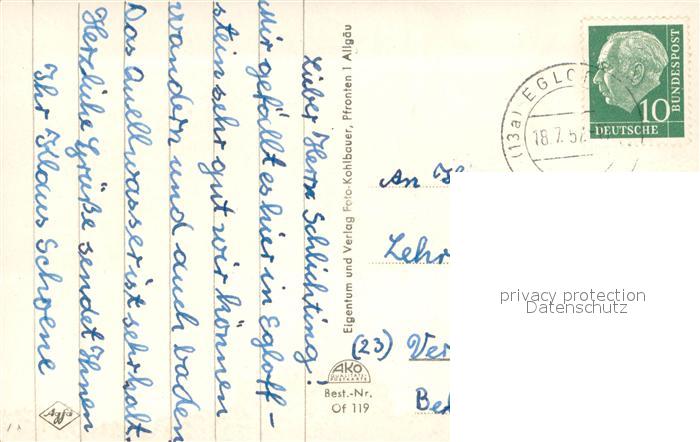 Lieber Herr Schlichting!
Mir gefällt es hier in Egloff-
stein sehr gut wir können
wandern und auch baden
Das Quellwasser ist sehr kalt.
Herzliche Grüße sendet Ihnen
Ihr Klaus Schoene
Eigentum und Verlag Foto-Kohlbauer, Pfronten i Allgäu
AKO
QUALITÄTS
POSTKARTE
Best.-Nr.
Of 119
Agfa
(13a) EGLOFF
18.7.57
10
DEUTSCHE
BUNDESPOST
An
Lehr
(23) Ver
Be
privacy protection
Datenschutz